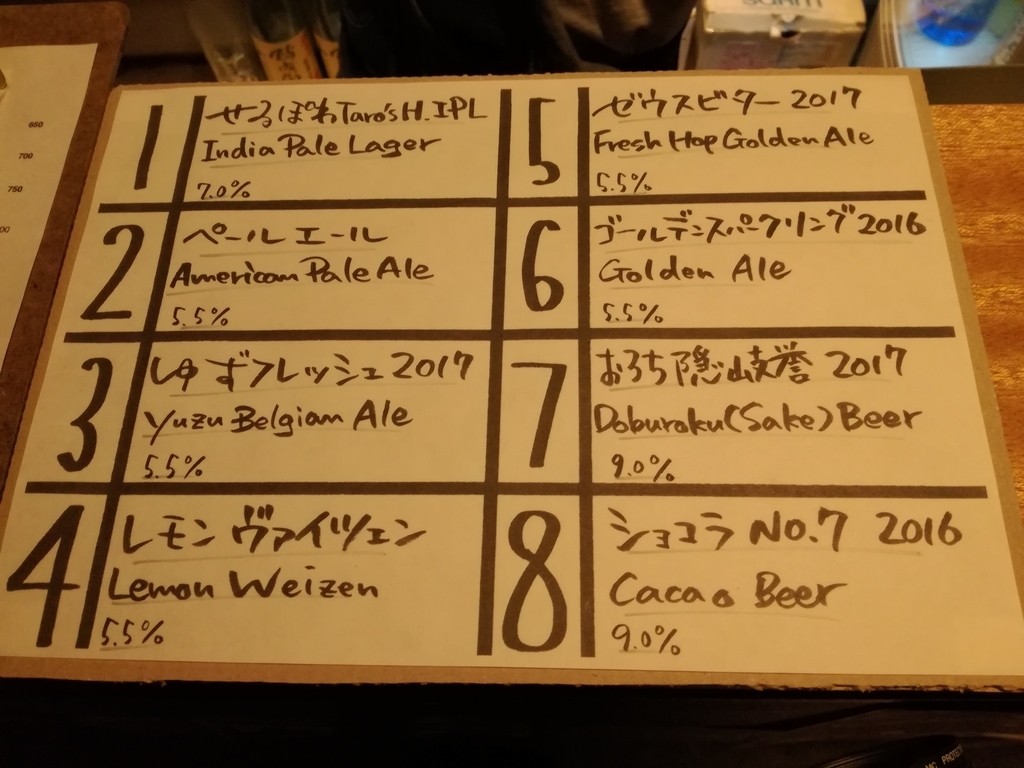 1
せるぽわTaro's H. IPL
India Pale Lager
7.0%
2
ペールエール
American Pale Ale
5.5%
3
ゆずフレッシュ2017
Yuzu Belgian Ale
5.5%
4
レモン ヴァイツェン
Lemon Weizen
5.5%
5
ゼウスビター 2017
Fresh Hop Golden Ale
5.5%
6
ゴールデンスパークリング2016
Golden Ale
5.5%
7
おろち隠岐誉 2017
Doburoku(Sake)Beer
9.0%
8
ショコラ No.7 2016
Cacao Beer
9.0%
650
700
750